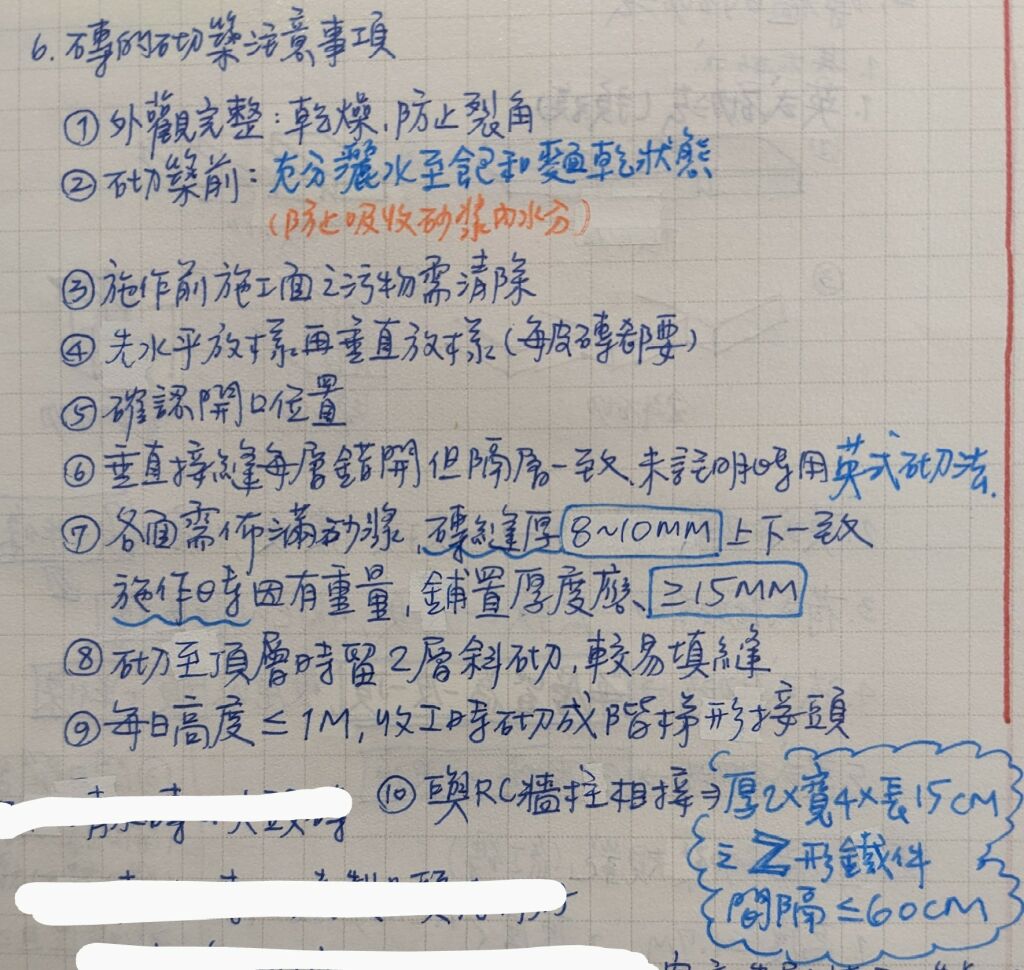 6.磚的砌築注意事項
①外觀完整:乾燥,防止裂角
②砌築前:充分灑水至飽和麵乾狀態
(防止吸收砂漿內水分)
③施作前施工面之污物需清除
④先水平放樣再垂直放樣(每皮磚都要)
⑤確認開口位置
⑥垂直接縫每層錯開但隔層一致,未註明時用英式砌法.
⑦各面需佈滿砂漿,磚縫厚8~10MM上下一致
施作時因有重量,舖置厚度應≥15MM
⑧砌至頂層時留2層斜砌,較易填縫
⑨每日高度≤1M,收工時砌成階梯形接頭
⑩與RC牆柱相接→厚2×寬4×長15CM
之Z形鐵件
間隔≤60CM